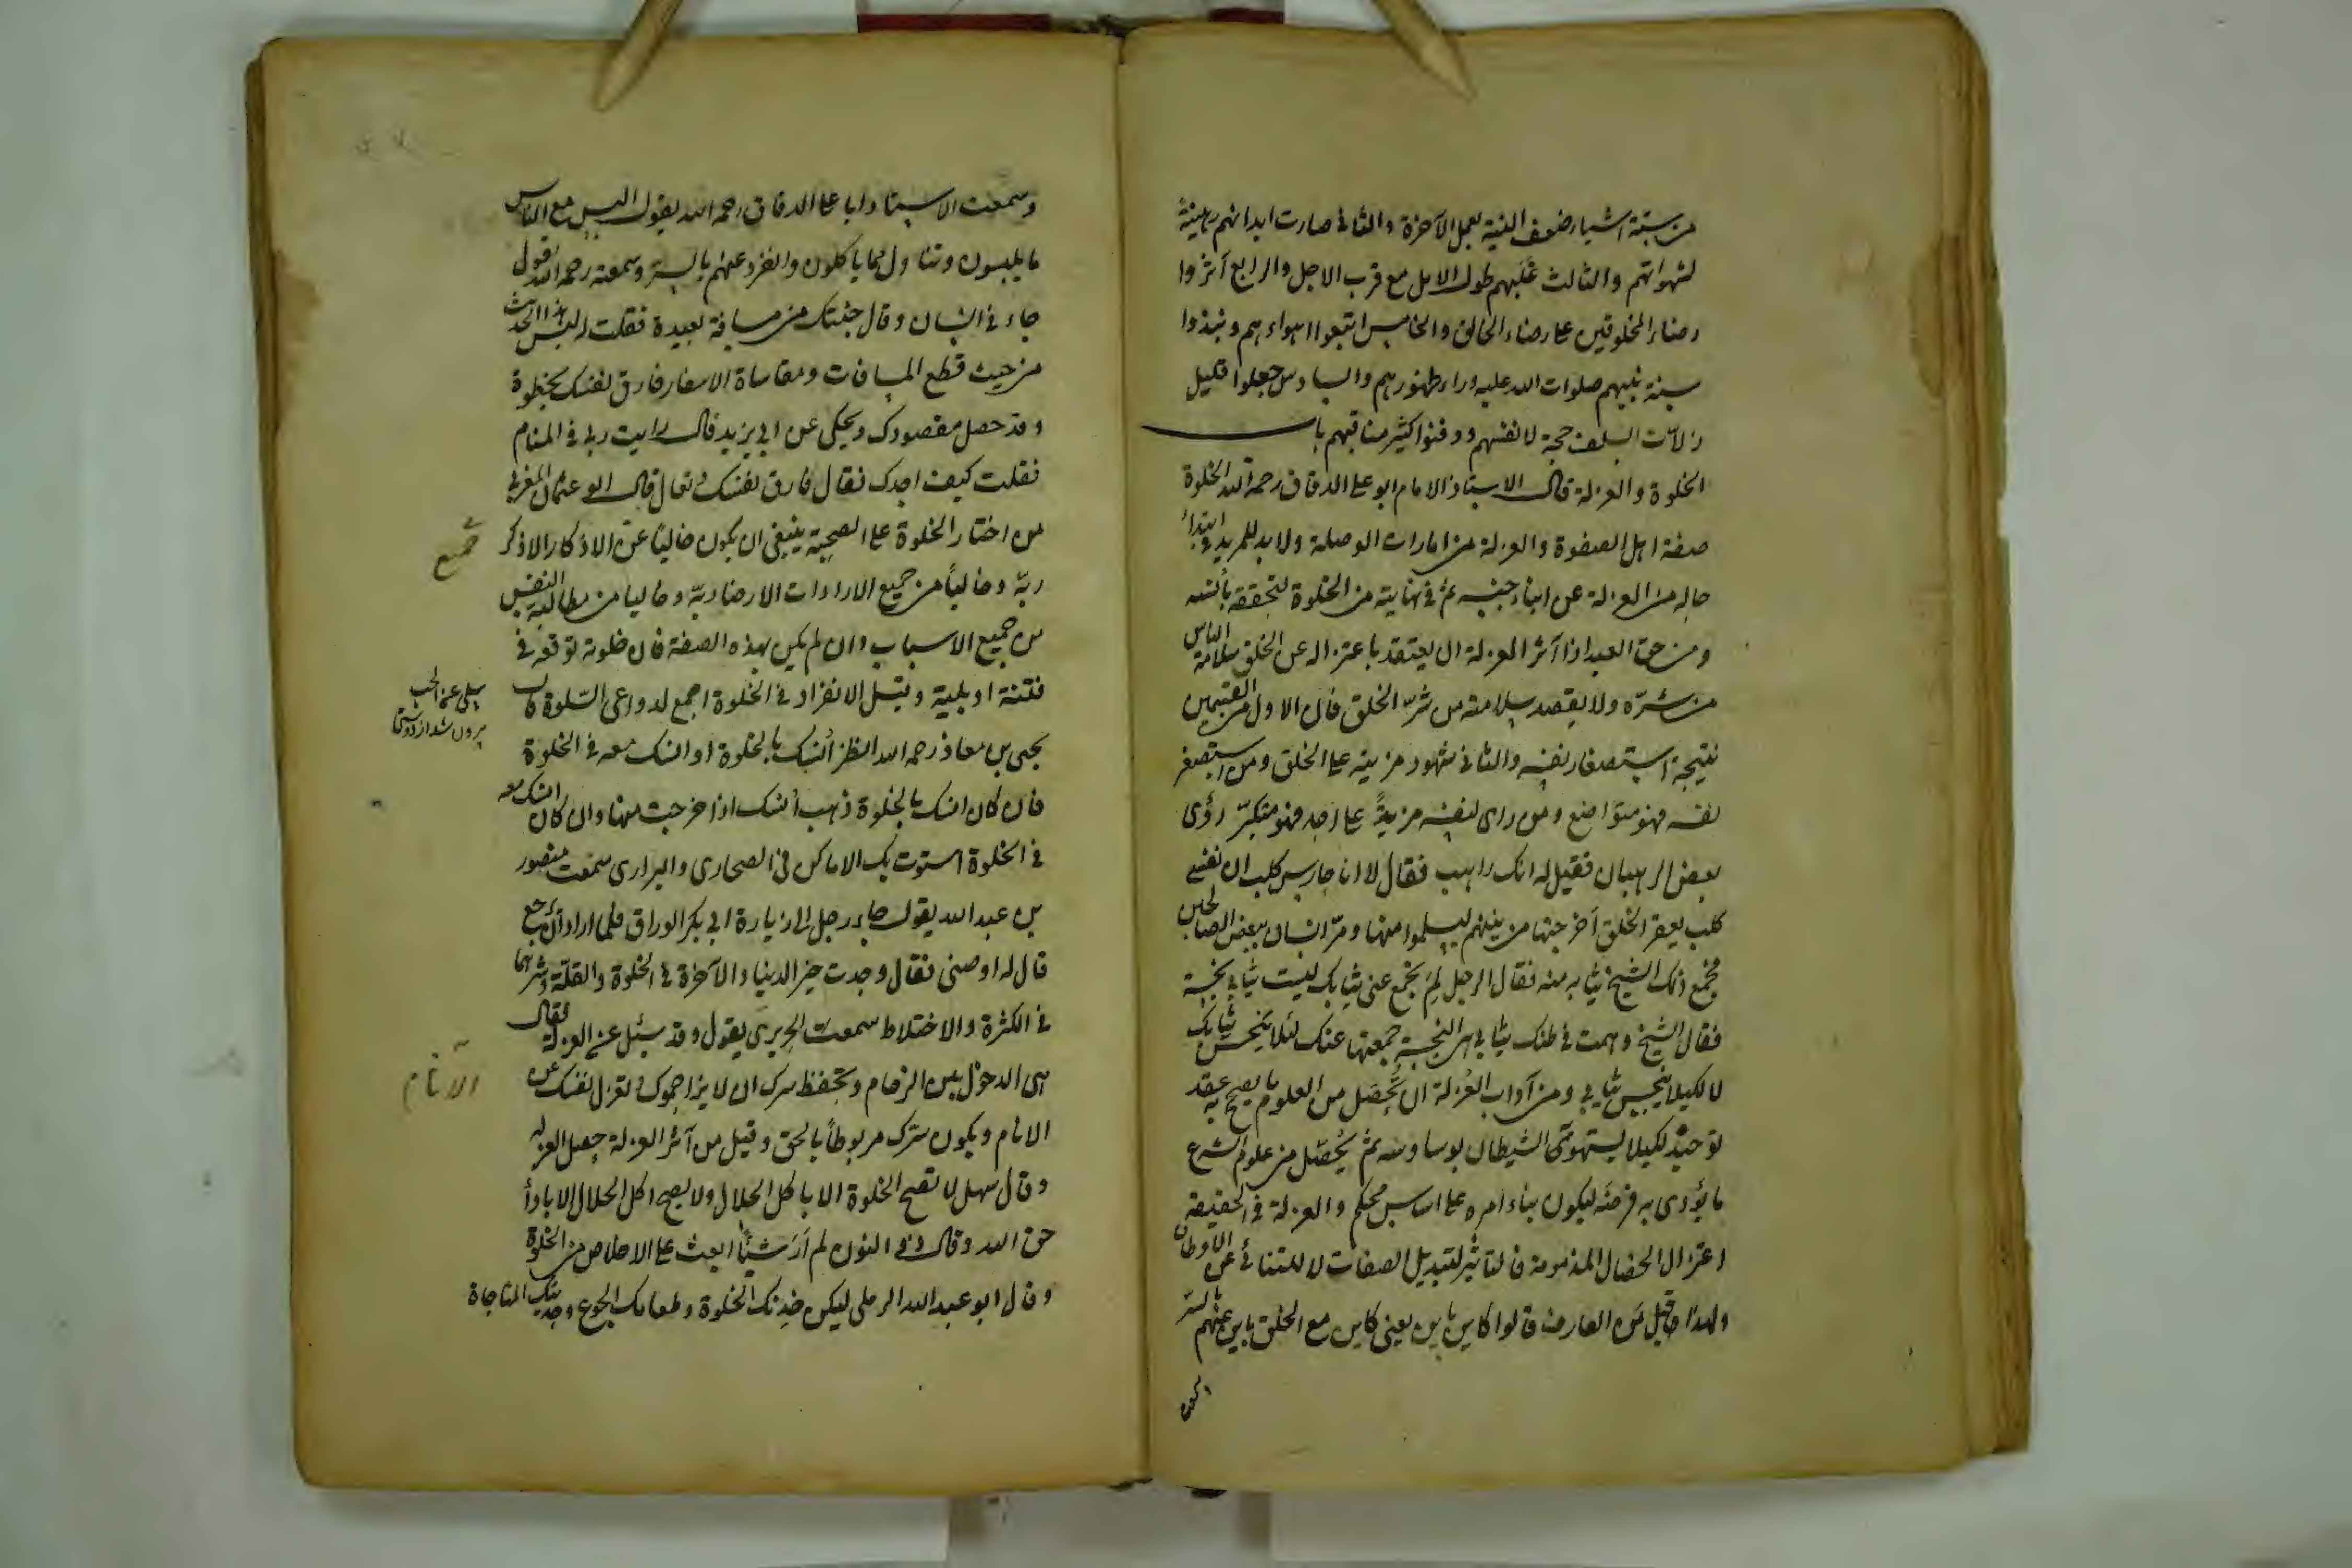 من ستة اشياء ضعف النية بعمل الآخرة والثانى صارت ابدانهم رهينة
لشهواتهم والثالث غلبهم طول الامل مع قرب الاجل والرابع آثروا
رضاء المخلوقين على رضاء الخالق والخامس اتبعوا اهواءهم ونبذوا
سنة نبيهم صلوات الله عليه وراء ظهورهم والسادس جعلوا قليل
زلات السلف حجة لانفسهم ودفنوا كثير مناقبهم باب
الخلوة والعزلة قال الاستاذ الامام ابو على الدقاق رحمه الله الخلوة
صفة اهل الصفوة والعزلة من امارات الوصلة ولا بد للمريد فى ابتداء
حاله من العزلة عن ابناء جنسه ثم فى نهايته من الخلوة لتحققه بأنسه
ومن حق العبد اذا آثر العزلة ان يعتقد باعتزاله عن الخلق سلامة الناس
من شره ولا يقصد سلامته من شر الخلق فان الاول من القسمين
نتيجة استصغار نفسه والثانى شهود مزيته على الخلق ومن استصغر
نفسه فهو متواضع ومن راى لنفسه مزيةً على احد فهو متكبر رؤى
بعض الرهبان فقيل له انك راهب فقال لا انا حارس كلب ان نفسى
كلب يعقر الخلق أخرجتها من بينهم ليسلموا منها ومر انسان ببعض الصالحين
فجمع ذلك الشيخ ثيابه منه فقال الرجل لم تجمع عنى ثيابك ليست ثيابى نجسة
فقال الشيخ وهمت فى ظنك ثيابى هى النجسة جمعتها عنك لئلا ينجس ثيابك
لا لكيلا ينجس ثيابى ومن آداب العزلة ان يحصل من العلوم ما يصح به عقد
توحيده لكيلا يستهويه الشيطان بوساوسه ثم يحصل من علوم الشرع
ما يؤدى به فرضه ليكون بناء امره على اساس محكم والعزلة فى الحقيقة
اعتزال الخصال المذمومة فالتأثير لتبديل الصفات لا للتنائى عن الاوطان
ولهذا قيل من العارف قالوا كاين باين يعنى كاين مع الخلق باين عنهم بالسر
وسمعت الاستاذ ابا على الدقاق رحمه الله يقول البس مع الناس
ما يلبسون وتناول مما يأكلون وانفرد عنهم بالسر وسمعته رحمه الله يقول
جاءنى انسان وقال جئتك من مسافة بعيدة فقلت له ليس هذا الحديث
من حيث قطع المسافات ومقاساة الاسفار فارق نفسك بخطوة
وقد حصل مقصودك ويحكى عن ابى يزيد قال رايت ربى فى المنام
فقلت كيف اجدك فقال فارق نفسك وتعال قال ابو عثمان المغربى
من اختار الخلوة على الصحبة ينبغى ان يكون خالياً عن الاذكار الا ذكر
ربه وخالياً من جميع الارادات الا رضا ربه وخاليا من مطالبة النفس
من جميع الاسباب وان لم يكن بهذه الصفة فان خلوته توقعه فى
فتنة او بلية وقيل الانفراد فى الخلوة اجمع لدواعى السلوة قال
يحيى بن معاذ رحمه الله انظر أنسك بالخلوة او انسك معه فى الخلوة
فان كان انسك بالخلوة ذهب أنسك اذا خرجت منها وان كان انسك معه
فى الخلوة استوت بك الاماكن فى الصحارى والبرارى سمعت منصور
بن عبد الله يقول جاء رجل الى زيارة ابى بكر الوراق فلما اراد ان يرجع
قال له اوصنى فقال وجدت خير الدنيا والآخرة فى الخلوة والقلة وشرهما
فى الكثرة والاختلاط سمعت الجريرى يقول وقد سئل عن العزلة فقال
هى الدخول بين الزحام وتحفظ سرك ان لا يزاحموك وتعزل نفسك عن
الانام ويكون سرك مربوطاً بالحق وقيل من آثر العزلة حصل العز له
وقال سهل لا تصح الخلوة الا باكل الحلال ولا يصح اكل الحلال الا باداء
حق الله وقال ذو النون لم أر شيئاً ابعث على الاخلاص من الخلوة
وقال ابو عبد الله الرملى ليكن خدنك الخلوة وطعامك الجوع وحديثك المناجاة
جميع
سلى عن الحب
بيرون شد از دوستى
الأنام